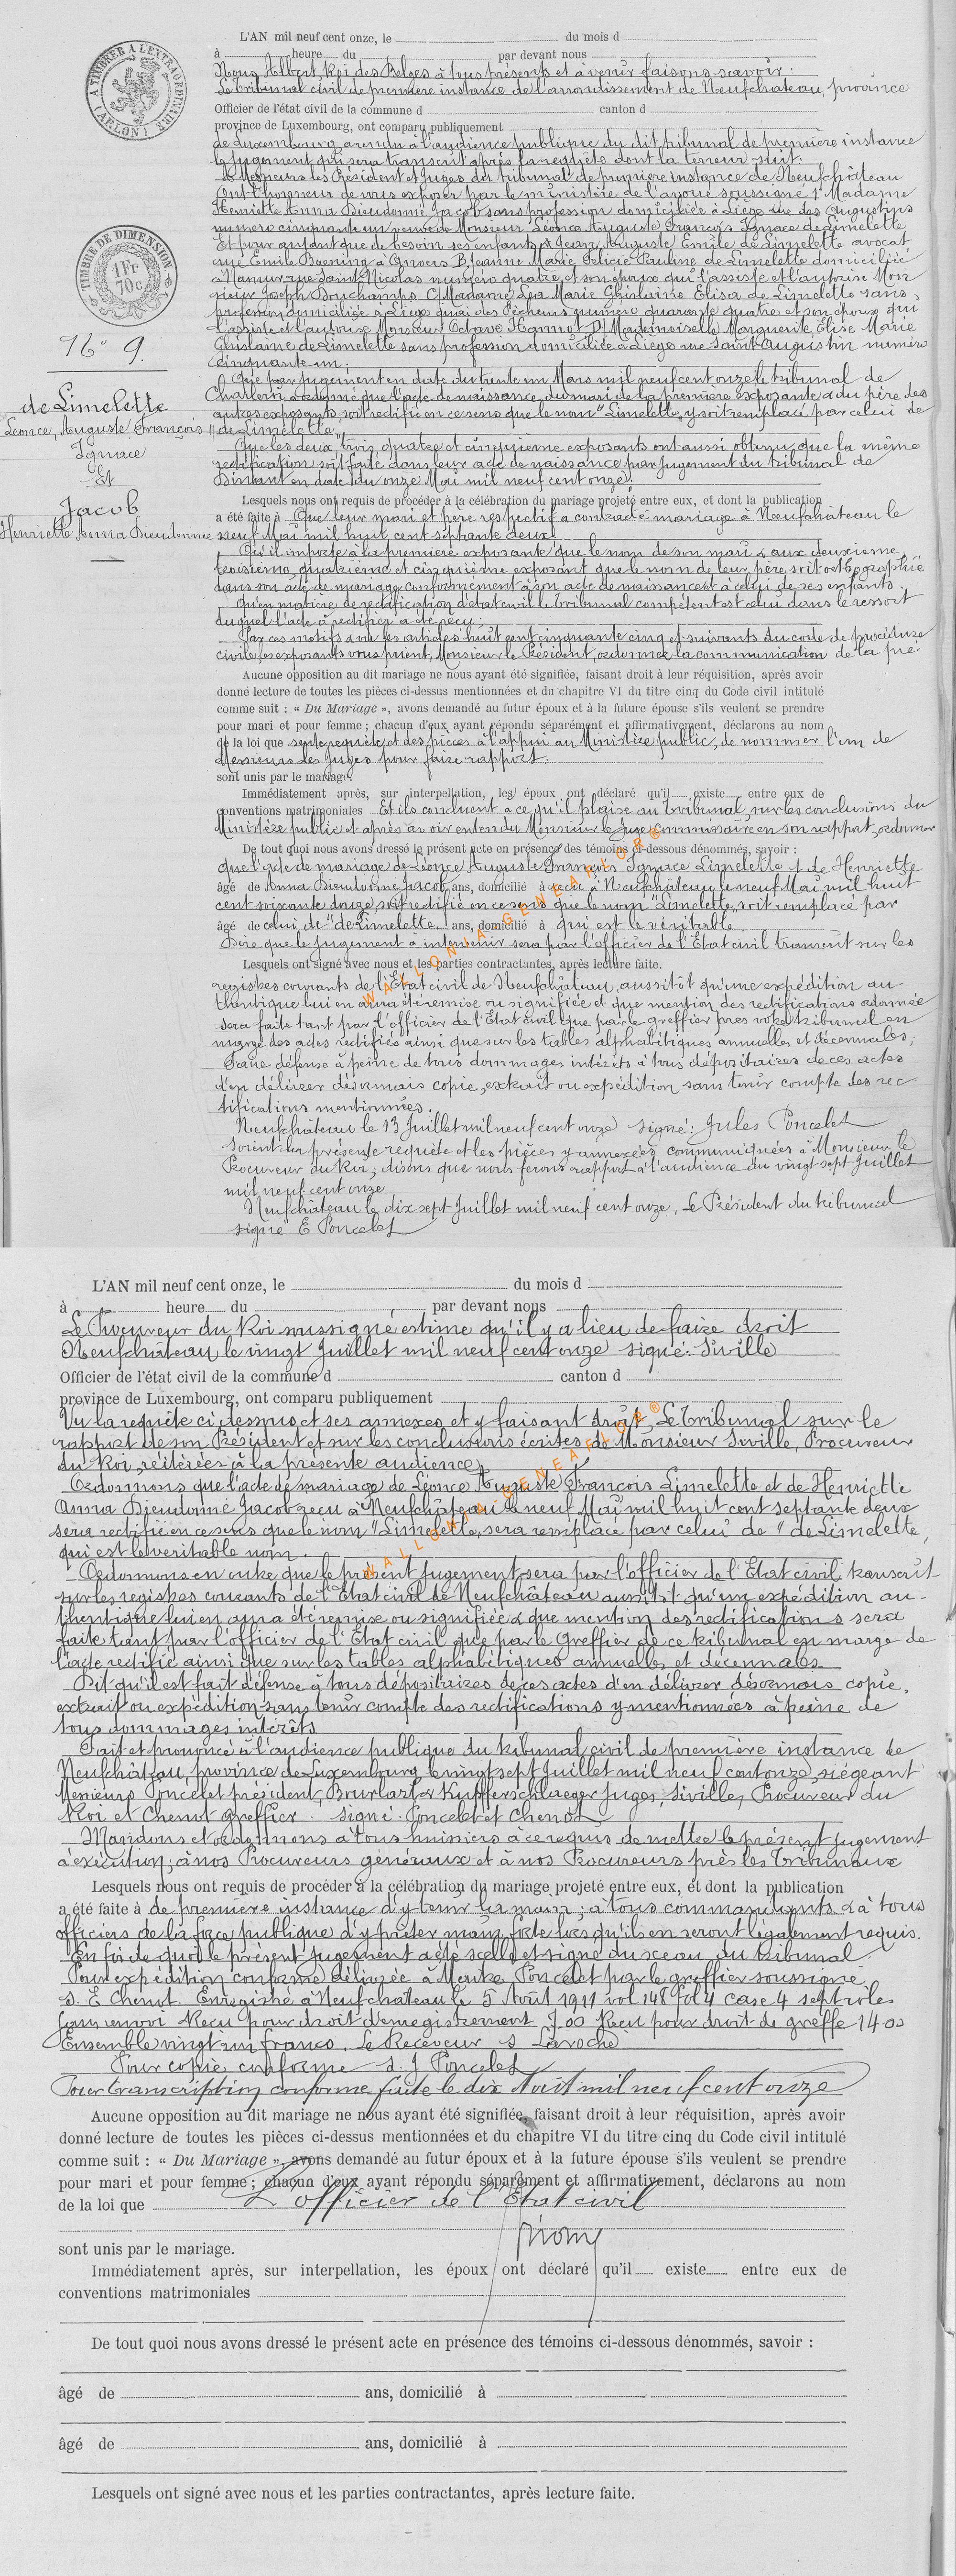 L'AN mil neuf cent onze, le du mois d
à heure du par devant nous
Nous Albert, Roi des Belges à tous présents et à venir faisons savoir :
Le Tribunal civil de première instance de l'arrondissement de Neufchâteau, province
Officier de l'état civil de la commune d canton d
province de Luxembourg, ont comparu publiquement
de Luxembourg a rendu à l'audience publique du dit tribunal de première instance
le jugement qui sera transcrit après la requête dont la teneur suit.
A Messieurs les Président et Juges du tribunal de première instance de Neufchâteau
Ont l'honneur de vous exposer par le ministère de l'avoué soussigné 1 Madame
Henriette Anna Dieudonné Jacob sans profession domiciliée à Liège rue des Augustins
numéro cinquante un veuve de Monsieur Léonce Auguste François Ignace de Limelette
Et pour autant que de besoin ses enfants A Jean Auguste Emile de Limelette avocat
rue Emile Baening à Anvers B Jeanne Marie Félicie Pauline de Limelette domiciliée
à Namur rue Saint Nicolas numéro quatre et son époux qui l'assiste et l'autorise Mon
sieur Joseph Bouchamps C Madame Léa Marie Ghislaine Elisa de Limelette sans
profession domiciliée à Liège quai des Pêcheurs numéro quarante quatre et son époux qui
l'assiste et l'autorise Monsieur Octave Hannot D Mademoiselle Marguerite Elise Marie
Ghislaine de Limelette sans profession domiciliée à Liège rue Saint Augustin numéro
cinquante un ;
Que par jugement en date du trente un Mars mil neuf cent onze le tribunal de
Charleroi a ordonné que l'acte de naissance du mari de la première exposante & du père des
autres exposants, soit rectifié en ce sens que le nom "Limelette" y soit remplacé par celui de
"de Limelette"
Que les deux, trois, quatre et cinquième exposants ont aussi obtenu que la même
rectification soit faite dans leur acte de naissance par jugement du tribunal de
Dinant en date du onze Mai mil neuf cent onze.
Lesquels nous ont requis de procéder à la célébration du mariage projeté entre eux, et dont la publication
a été faite à Que leur mari et père respectif a contracté mariage à Neufchâteau le
neuf Mai mil huit cent septante deux
Qu'il importe à la première exposante que le nom de son mari & aux deuxième
troisième, quatrième et cinquième exposant que le nom de leur père soit orthographié
dans son acte de mariage conformément à son acte de naissance et à celui de ses enfants.
Qu'en matière de rectification d'état civil le Tribunal compétent est celui dans le ressort
duquel l'acte à rectifier a été reçu ;
Par ces motifs & vu les articles huit cent cinquante cinq et suivants du code de procédure
civile, les exposants vous prient, Monsieur le Président, ordonner la communication de la pré-
Aucune opposition au dit mariage ne nous ayant été signifiée, faisant droit à leur réquisition, après avoir
donné lecture de toutes les pièces ci-dessus mentionnées et du chapitre VI du titre cinq du Code civil intitulé
comme suit : « Du Mariage », avons demandé au futur époux et à la future épouse s'ils veulent se prendre
pour mari et pour femme ; chacun d'eux ayant répondu séparément et affirmativement, déclarons au nom
de la loi que sente requête et des pièces à l'appui au Ministère public, de nommer l'un de
Messieurs les Juges pour faire rapport.
sont unis par le mariage.
Immédiatement après, sur interpellation, les époux ont déclaré qu'il existe entre eux de
conventions matrimoniales Et ils concluent à ce qu'il plaise au Tribunal, sur les conclusions du
Ministère public et après avoir entendu Monsieur le Juge Commissaire en son rapport, ordonner
De tout quoi nous avons dressé le présent acte en présence des témoins ci-dessous dénommés, savoir :
que l'acte de mariage de Léonce Auguste François Ignace Limelette & de Henriette
âgé de Anna Dieudonné Jacob ans, domicilié à reçu à Neufchâteau le neuf Mai mil huit
cent soixante douze, soit rectifié en ce sens que le nom "Limelette" soit remplacé par
âgé de celui de "de Limelette" ans, domicilié à qui est le véritable.
Dire que le jugement à intervenir sera par l'officier de l'Etat civil transcrit sur les
Lesquels ont signé avec nous et les parties contractantes, après lecture faite.
registres courants de l'Etat civil de Neufchâteau, aussitôt qu'une expédition au-
thentique lui en aura été remise ou signifiée et que mention des rectifications ordonnées
sera faite tant par l'officier de l'Etat civil que par le greffier près votre tribunal en
marge des actes rectifiés ainsi que sur les tables alphabétiques annuelles et décennales ;
Faire défense à peine de tous dommages intérêts à tous dépositaires de ces actes
d'en délivrer désormais copie, extrait ou expédition sans tenir compte des rec
tifications mentionnées.
Neufchâteau le 13 Juillet mil neuf cent onze signé : Jules Poncelet
Soient la présente requête et les pièces y annexées communiquées à Monsieur le
Procureur du Roi ; disons que nous ferons rapport à l'audience du vingt sept Juillet
mil neuf cent onze
Neufchâteau le dix sept Juillet mil neuf cent onze, Le Président du tribunal
signé E Poncelet
A TIMBRER A L'EXTRAORDINAIRE (ARLON)
TIMBRE DE DIMENSION
1 Fr
70c
No 9.
de Limelette
Léonce, Auguste François
Ignace
Et
Jacob
Henriette Anna Dieudonnée
WALLONIA-GENEAFLOR®
L'AN mil neuf cent onze, le du mois d
à heure du par devant nous
Le Procureur du Roi soussigné estime qu'il y a lieu de faire droit
Neufchâteau le vingt Juillet mil neuf cent onze signé : Siville
Officier de l'état civil de la commune d canton d
province de Luxembourg, ont comparu publiquement
Vu la requête ci dessus et ses annexes et y faisant droit, Le Tribunal sur le
rapport de son Président et sur les conclusions écrites de Monsieur Siville, Procureur
du Roi, réitérées à la présente audience,
Ordonnons que l'acte de mariage de Léonce Auguste François Limelette et de Henriette
Anna Dieudonné Jacob reçu à Neufchâteau le neuf Mai mil huit cent septante deux
sera rectifié en ce sens que le nom "Limelette" sera remplacé par celui de "de Limelette"
qui est le véritable nom.
Ordonnons en outre que le présent jugement sera par l'officier de l'Etat civil transcrit
sur les registres courants de l'Etat civil de Neufchâteau aussitôt qu'un expédition au-
thentique lui en aura été remise ou signifiée & que mention des rectifications sera
faite tant par l'officier de l'Etat civil que par le Greffier de ce tribunal en marge de
l'acte rectifié ainsi que sur les tables alphabétiques annuelles et décennales
Dit qu'il est fait défense à tous dépositaires de ces actes d'en délivrer désormais copie,
extrait ou expédition sans tenir compte des rectifications y mentionnées à peine de
tous dommages intérêts
Fait et prononcé à l'audience publique du tribunal civil de première instance de
Neufchâteau, province de Luxembourg le vingt sept Juillet mil neuf cent onze, siégeant
Messieurs Poncelet président, Bourtart & Kupfferschlaeger Juges, Siville, Procureur du
Roi et Chenot greffier. signé : Poncelet et Chenot
Mandons et ordonnons à tous huissiers à ce requis de mettre le présent jugement
à exécution ; à nos Procureurs généraux et à nos Procureurs près les Tribunaux
Lesquels nous ont requis de procéder à la célébration du mariage projeté entre eux, et dont la publication
a été faite à de première instance d'y tenir la main ; à tous commandants & à tous
officiers de la force publique d'y prêter main forte lorsqu'ils en seront légalement requis.
En foi de quoi le présent jugement a été scellé et signé du sceau du tribunal
Pour expédition conforme délivrée à Maître Poncelet par le greffier soussigné
s. E Chenot Enregistré à Neufchâteau le 5 Août 1911 vol 148 fol 4 case 4 sept roles
sans renvoi Reçu pour droit d'enregistrement 7.00 Reçu pour droit de greffe 14 00
Ensemble vingt un francs. Le Receveur s Laroche
Pour copie conforme s. J Poncelet
Pour transcription conforme faite le dix Août mil neuf cent onze
Aucune opposition au dit mariage ne nous ayant été signifiée, faisant droit à leur réquisition, après avoir
donné lecture de toutes les pièces ci-dessus mentionnées et du chapitre VI du titre cinq du Code civil intitulé
comme suit : « Du Mariage », avons demandé au futur époux et à la future épouse s'ils veulent se prendre
pour mari et pour femme ; chacun d'eux ayant répondu séparément et affirmativement, déclarons au nom
de la loi que L'officier de l'Etat civil
sont unis par le mariage.
Immédiatement après, sur interpellation, les époux ont déclaré qu'il existe entre eux de
conventions matrimoniales
De tout quoi nous avons dressé le présent acte en présence des témoins ci-dessous dénommés, savoir :
âgé de ans, domicilié à
âgé de ans, domicilié à
Lesquels ont signé avec nous et les parties contractantes, après lecture faite.
WALLONIA-GENEAFLOR®